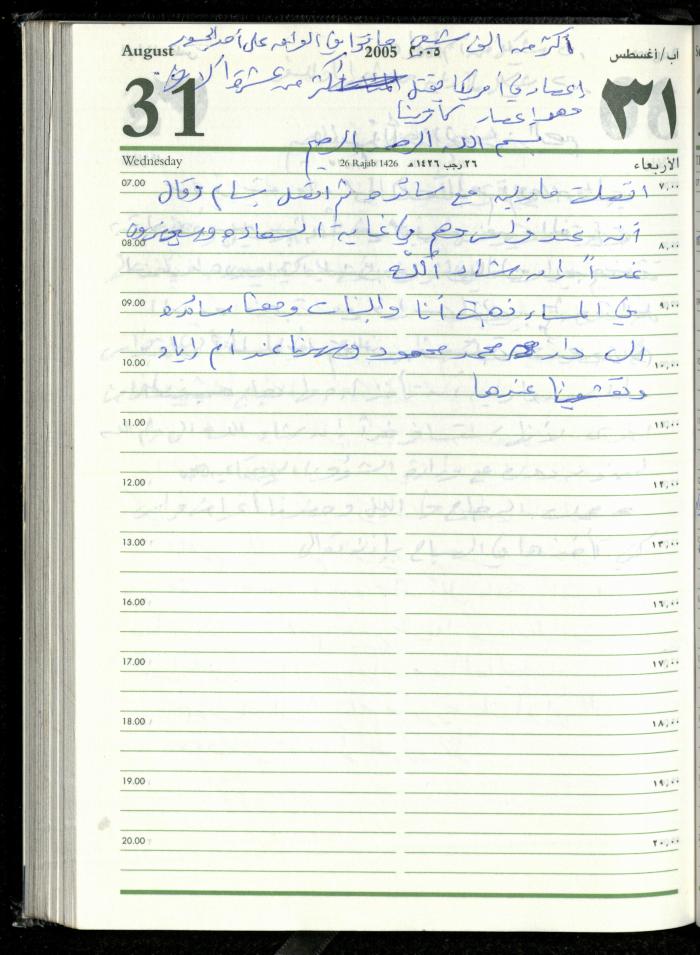 أكثر من ألف شيعي ماتوا في العراق على أحد الجسور
August 2005 ٢٠٠٥ آب/أغسطس
إعصار في أمريكا يقتل أكثر من عشرة آلاف
31 ٣١
وهو إعصار كاترينا
بسم الله الرحمن الرحيم
Wednesday 26 Rajab 1426 ٢٦ رجب ١٤٢٦ هـ الأربعاء
07.00 ٧,٠٠
اتصلت مارلين مع سائدة ثم اتصل بسام وقال
أنه عند فراس وهم في غاية السعادة
08.00 ٨,٠٠
غداً إن شاء الله
09.00 ٩,٠٠
في المساء ذهبت أنا والبنات ومعنا سائدة
الى دار محمد محمود وسهرنا عند أم زياد
10.00 ١٠,٠٠
وتعشينا عندها
11.00 ١١,٠٠
12.00 ١٢,٠٠
13.00 ١٣,٠٠
16.00 ١٦,٠٠
17.00 ١٧,٠٠
18.00 ١٨,٠٠
19.00 ١٩,٠٠
20.00 ٢٠,٠٠